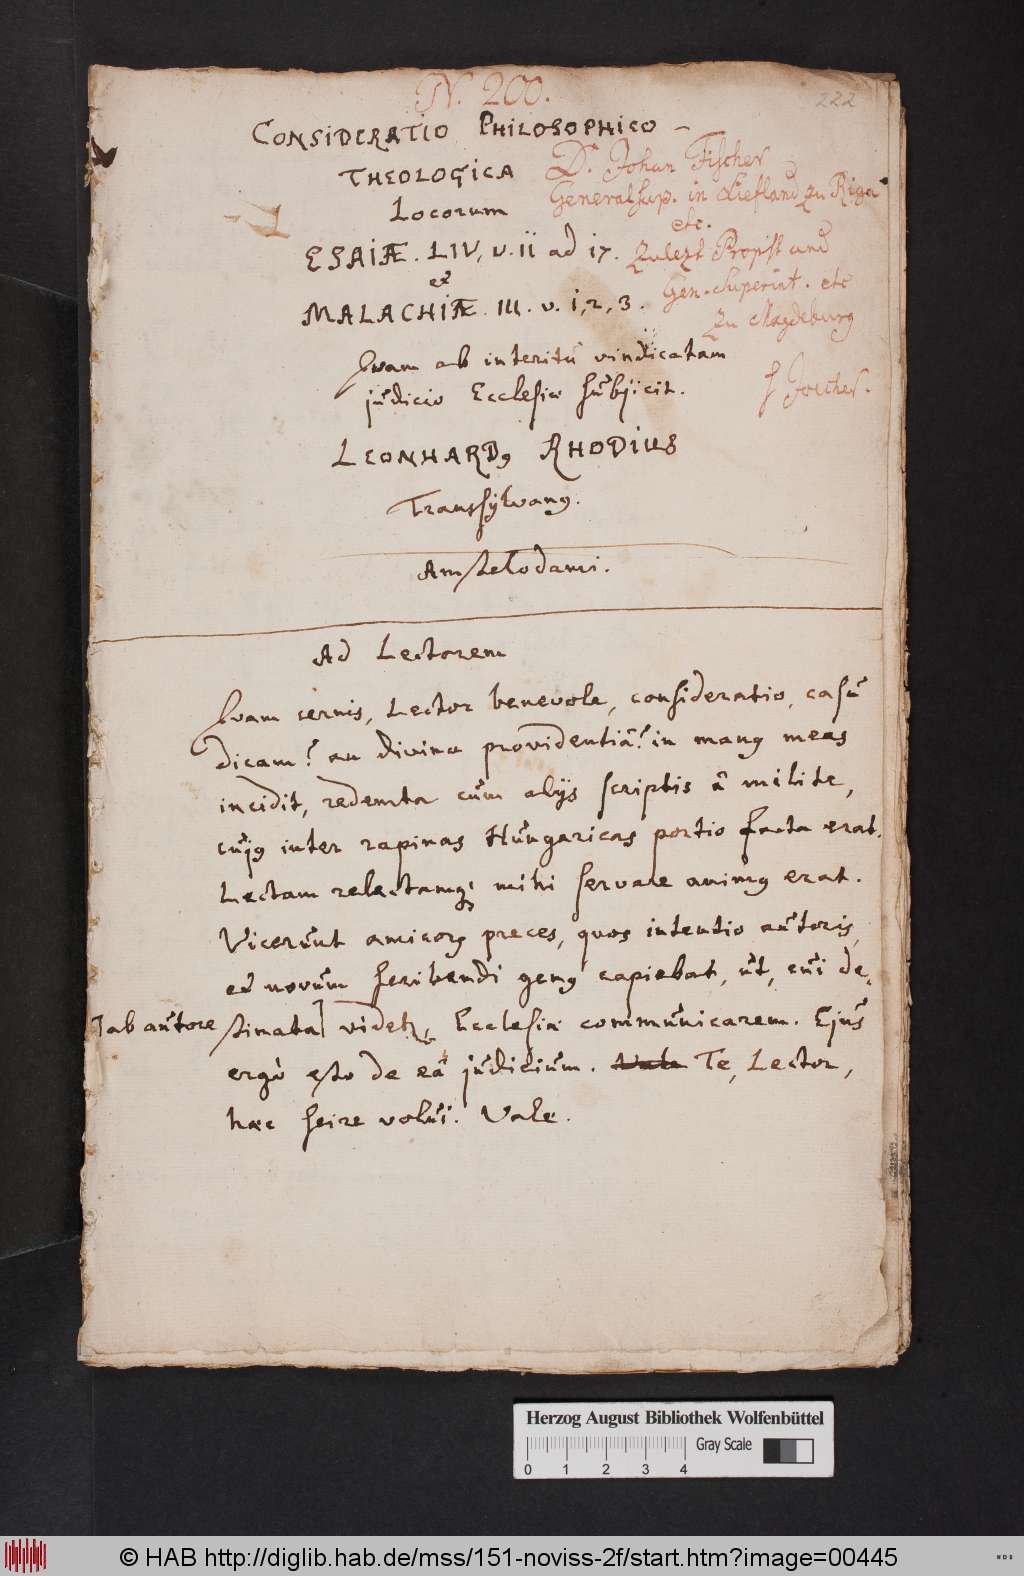 N. 200.
222
CONSIDERATIO PHILOSOPHICO-
THEOLOGICA
Locorum
ESAIÆ. LIV, v. ii ad i7.
et
MALACHIÆ. III. v. i, 2, 3.
D. Johan Fischer
General Sup. in Liefland zu Riga
etc.
Zulezt Propst und
Gen. Superint. etc
zu Magdeburg
f Joecher.
Qvam ab interitu vindicatam
judicio Ecclesiæ subjicit.
LEONHARD9 RHODIUS
Transsylvan9.
Amstelodami.
Ad Lectorem
Qvam cernis, Lector benevole, consideratio, casu
dicam? an divina providentiâ? in man9 meas
incidit, redemta cum alijs scriptis â milite,
cuj9 inter rapinas Hungaricas portio facta erat.
Lectam relectamq; mihi servare anim9 erat.
Vicerunt amicor preces, quos intentio autoris,
et novum scribendi gen9 capiebat, ut, cui de-
] ab autore
stinata] videtr, Ecclesiæ communicarem. Ejus
ergò esto de eâ judicium. Vale Te, Lector,
hæc scire volui. Vale.
Herzog August Bibliothek Wolfenbüttel
Gray Scale
0 1 2 3 4
© HAB http://diglib.hab.de/mss/151-noviss-2f/start.htm?image=00445